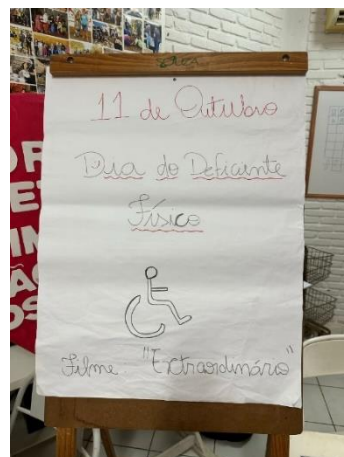 11 de Outubro
Dia do Deficiente
Físico
Filme "Extraordinário"